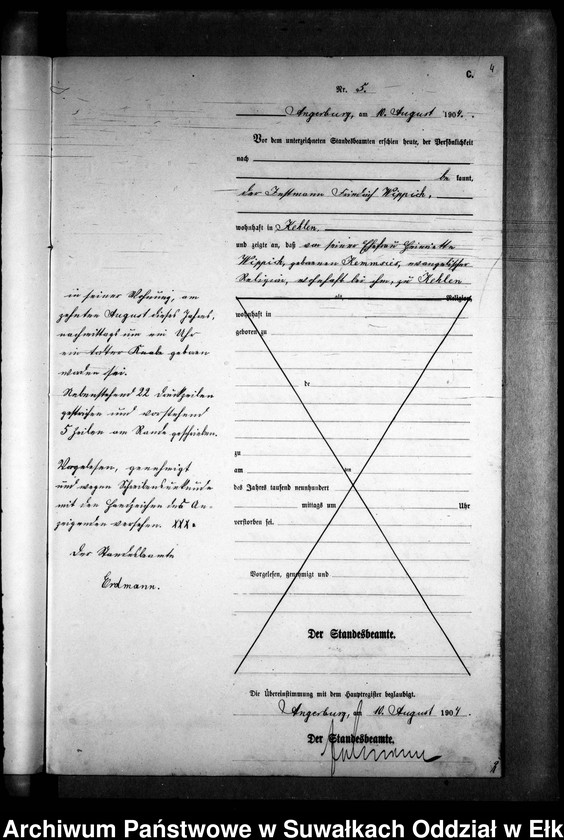 4
C.
Nr. 5.
Angerburg, am 10. August 1904.
Vor dem unterzeichneten Standesbeamten erschien heute, der Persönlichkeit
nach
be kannt,
der Instmann Friedrich Wippich,
wohnhaft in Kehlen.
und zeigte an, daß von seiner Ehefrau Henriette
Wippich, geborenen evangelischer
Religion, wohnhaft bei ihm, zu Kehlen
alt Religion,
wohnhaft in
geboren zu
de
zu
am ten
des Jahres tausend neunhundert
mittags um Uhr
verstorben sei.
Vorgelesen, genehmigt und
Der Standesbeamte.
in seiner Wohnung, am
zehnten August dieses Jahres,
nachmittags um ein Uhr
ein toter Knabe geboren
worden sei.
Nebenstehend 22 Druckzeilen
gestrichen und vorstehend
5 Zeilen am Rande geschrieben.
Vorgelesen, genehmigt
und wegen Schreibensunkunde
mit den Handzeichen des An-
zeigenden versehen. XXX.
Der Standesbeamte
Erdmann.
Die Übereinstimmung mit dem Hauptregister beglaubigt.
Angerburg, am 10. August 1904.
Der Standesbeamte.
Erdmann
Archiwum Państwowe w Suwałkach Oddział w Ełk